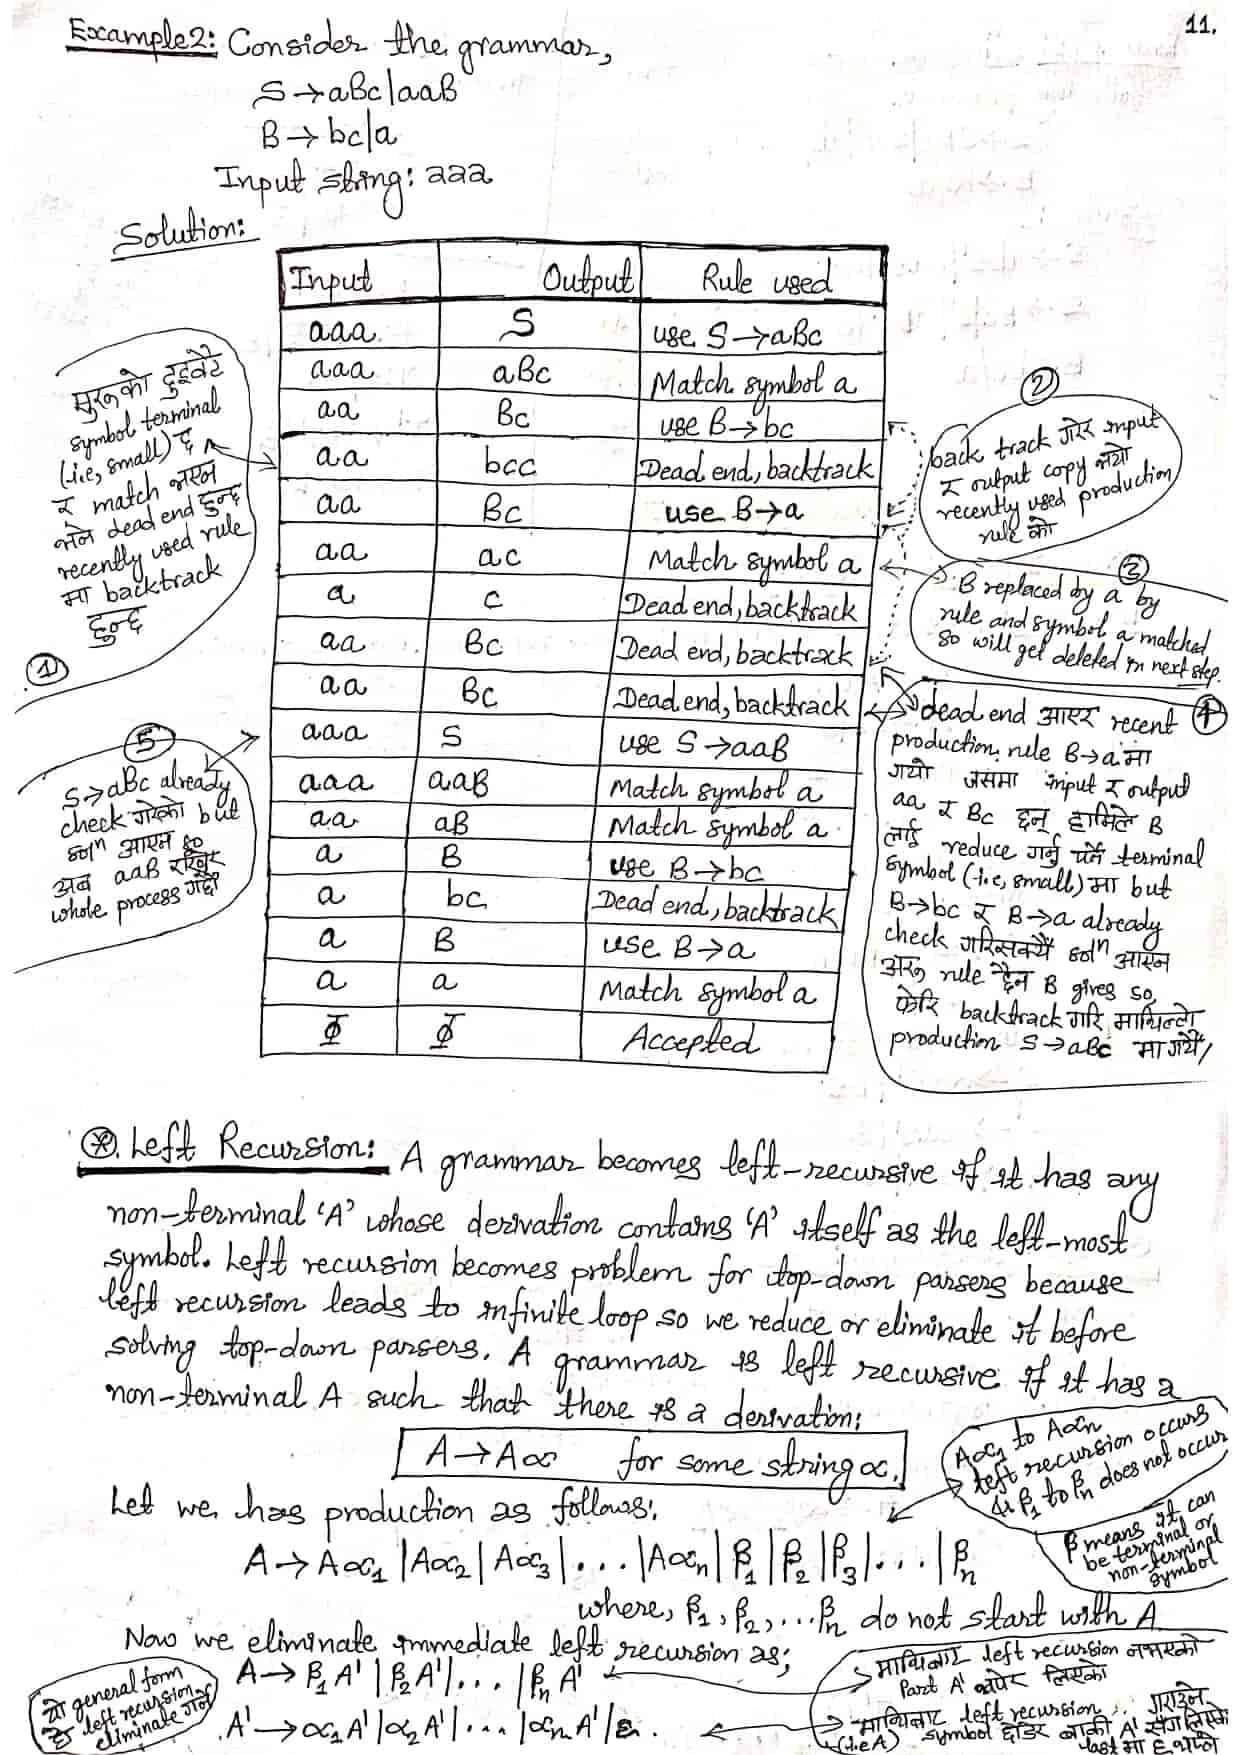 11.
Example2: Consider the grammar,
S→aBc|aaB
B→ bc|a
Input string: aaa
Solution:
Input Output Rule used
aaa S use S→aBc
aaa aBc Match symbol a
aa Bc use B→bc
aa bcc Dead end, backtrack
aa Bc use B→a
aa ac Match symbol a
a c Dead end, backtrack
aa Bc Dead end, backtrack
aa Bc Dead end, backtrack
aaa S use S→aaB
aaa aaB Match symbol a
aa aB Match symbol a
a B use B→bc
a bc Dead end, backtrack
a B use B→a
a a Match symbol a
Φ Φ Accepted
सुरुको दुइवटै
symbol terminal
(i.e, small) छ
र match भएन
भने dead end हुन्छ
recently used rule
मा backtrack
हुन्छ
1
2
back track गरेर input
र output copy भयो
recently used production
rule को
3
B replaced by a by
rule and symbol a matched
so will get deleted in next step.
4
dead end आएर recent
production rule B→a मा
गयो जसमा input र output
aa र Bc छन् हामिले B
लाई reduce गर्नु पर्ने terminal
symbol (i.e, small) मा but
B→bc र B→a already
check गरिसक्यौं solⁿ आएन
अरु rule छैन B gives so
फेरि backtrack गरि माथिल्लो
production S→aBc मा गयौं
5
S→aBc already
check गरेको but
solⁿ आएन so
अब aaB राखेर
whole process गर्दा
⊛. Left Recursion: A grammar becomes left-recursive if it has any
non-terminal 'A' whose derivation contains 'A' itself as the left-most
symbol. Left recursion becomes problem for top-down parsers because
left recursion leads to infinite loop so we reduce or eliminate it before
solving top-down parsers. A grammar is left recursive if it has a
non-terminal A such that there is a derivation:
A→A∝ for some string ∝.
A∝₁ to A∝n
left recursion occurs
β₁ to βn does not occur
Let we has production as follows:
β means it can
be terminal or
non-terminal
symbol
A→A∝₁|A∝₂|A∝₃|...|A∝n|β₁|β₂|β₃|...|βn
where, β₁, β₂, ...βn do not start with A
Now we eliminate immediate left recursion as;
A→β₁A'|β₂A'|...|βnA'
A'→∝₁A'|∝₂A'|...|∝nA'|ε.
यो general form
हो left recursion
eliminate गर्ने
माथिबाट left recursion नभएको
Part A' थपेर लिएको
माथिबाट left recursion गराउने
(i.e A) symbol छोडेर बाकी A' संग लिएको
last मा ε थप्ने